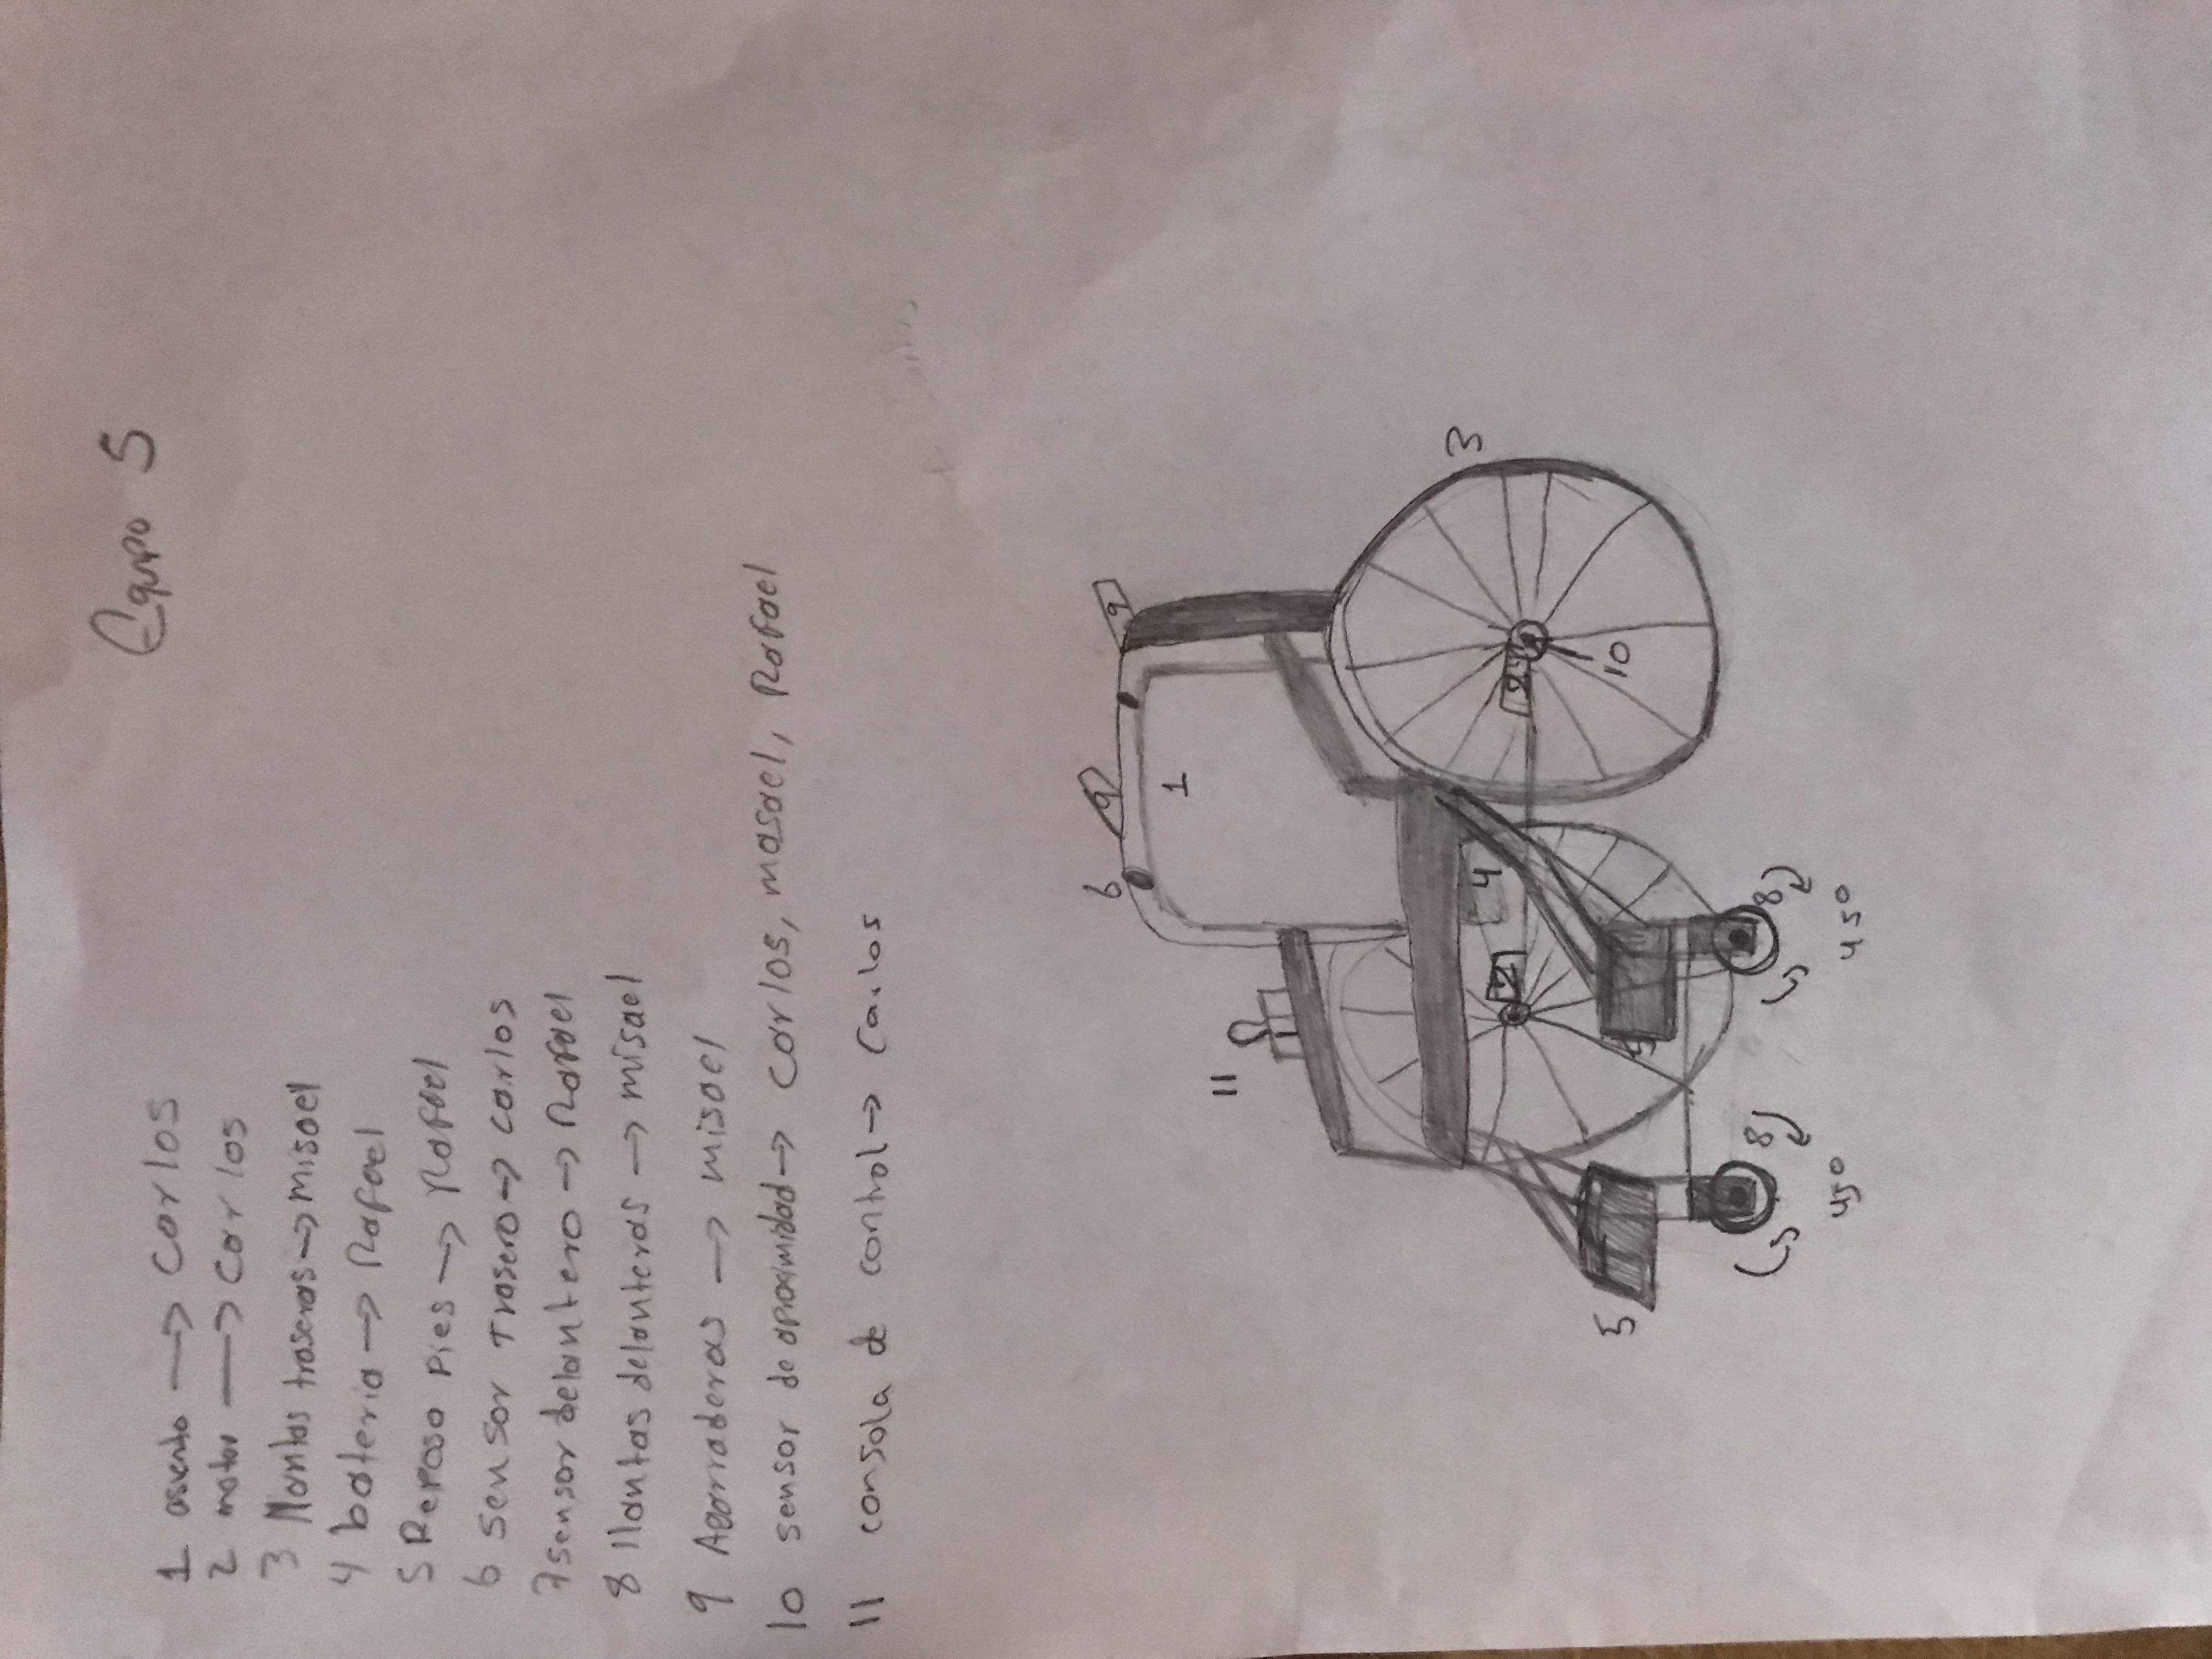 Equipo 5
1 asiento → Carlos
2 motor → Carlos
3 llantas traseras → misael
4 bateria → Rafael
5 Reposa Pies → Rafael
6 sensor Trasero → carlos
7 sensor delantero → Rafael
8 llantas delanteras → misael
9 Agarraderas → misael
10 sensor de aproximidad → Carlos, masael, Rafael
11 consola de control → Carlos
6 9 9
1
11
3
4
2 2
10
5 5
8 8
45° 45°